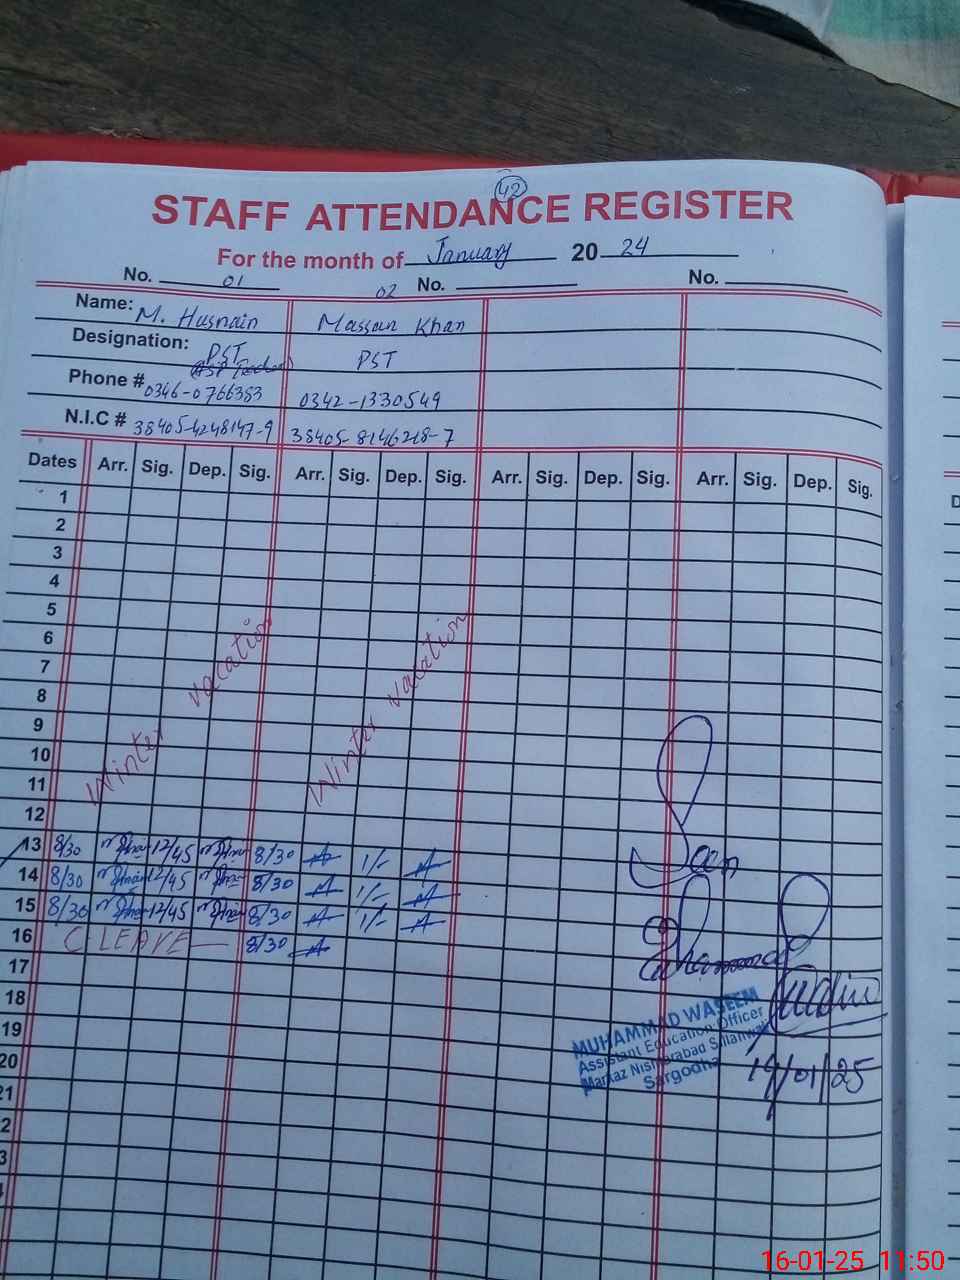 42
STAFF ATTENDANCE REGISTER
For the month of January 2024
No. 01 02 No. No.
Name: M. Husnain Massan Khan
Designation: PST PST
Phone # 0346-0766383 0342-1330549
N.I.C # 38405-4248147-9 38405-8146218-7
Dates Arr. Sig. Dep. Sig. Arr. Sig. Dep. Sig. Arr. Sig. Dep. Sig. Arr. Sig. Dep. Sig.
1
2
3
4
5
6
7
8
9
10
11
12
Winter vacation Winter vacation
13 8/30 12/45 8/30 1/-
14 8/30 12/45 8/30 1/-
15 8/30 12/45 8/30 1/-
16 C-LEAVE 8/30
17
18
19
20
21
2
3
Seen
MUHAMMAD WASEEM
Assistant Education Officer
Markaz Nishterabad Sillanwali
Sargodha
16-01-25 11:50